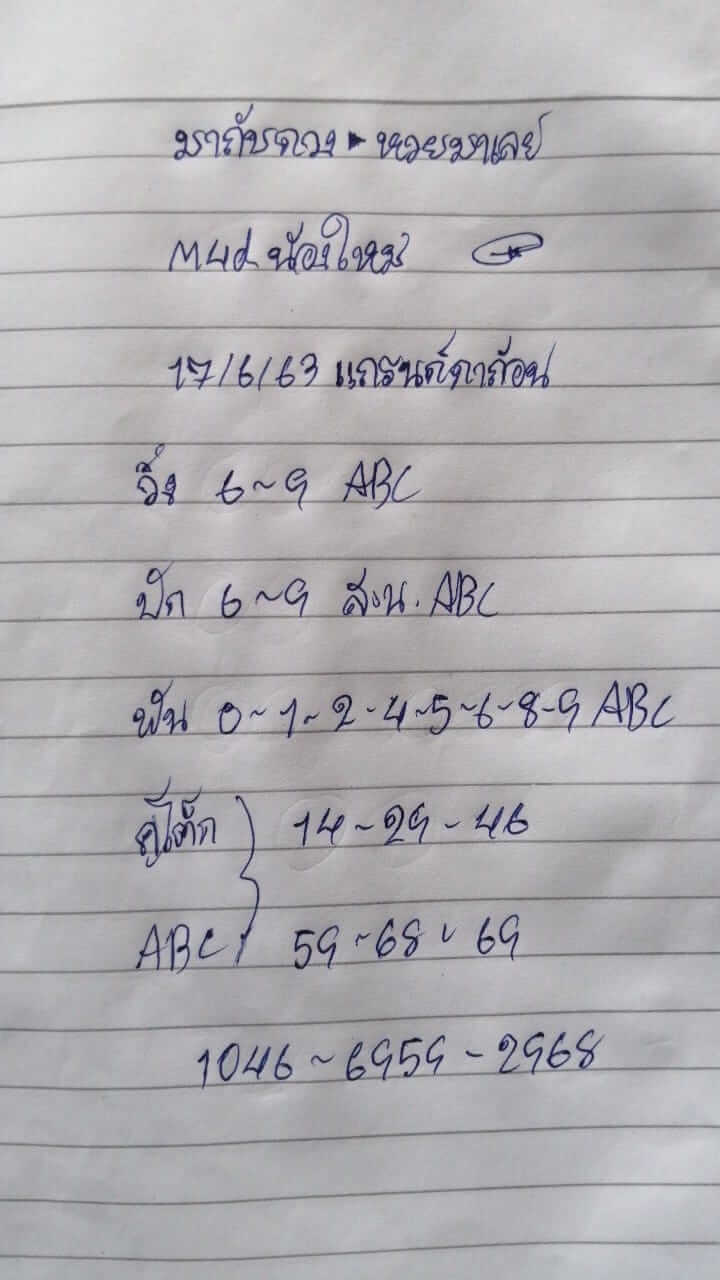 มากับดวง ▸ หวยมาเลย์
M4d น้องใหม่
17/6/63 แกรนด์ดราก้อน
วิ่ง 6~9 ABC
ปัก 6~9 ส.น. ABC
ฟัน 0~1~2-4~5~6-8-9 ABC
คู่โต๊ด } 14~29-46
ABC 59~68~69
1046~6959-2968